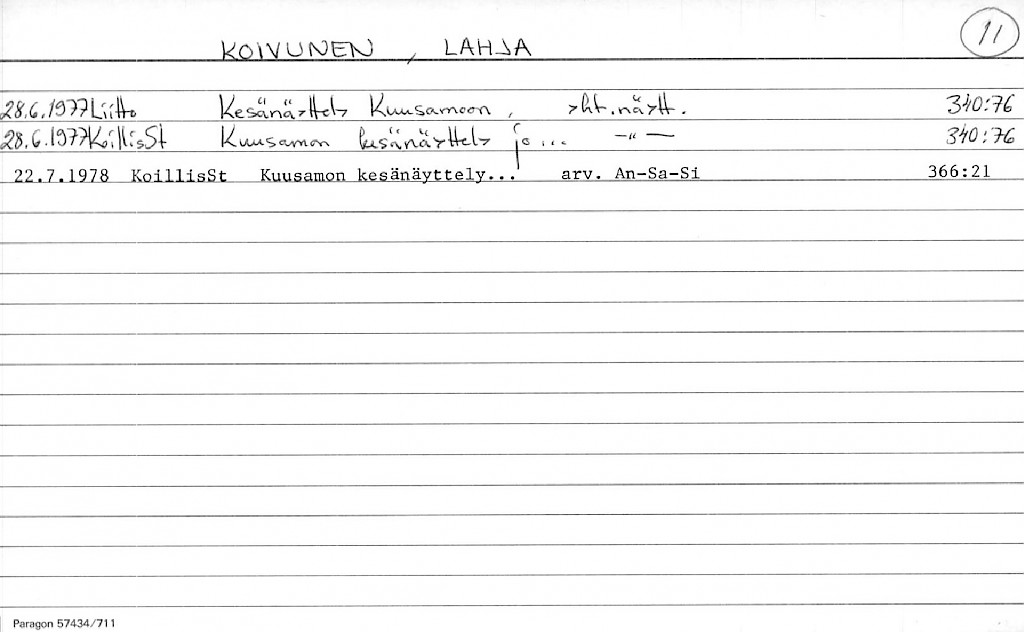 KOIVUNEN, LAHJA 11
28.6.1977 Liitto Kesänäyttely Kuusamoon, yht.näytt. 340:76
28.6.1977 KoillisSt Kuusamon kesänäyttely jo... -"- 340:76
22.7.1978 KoillisSt Kuusamon kesänäyttely... arv. An-Sa-Si 366:21
Paragon 57434/711